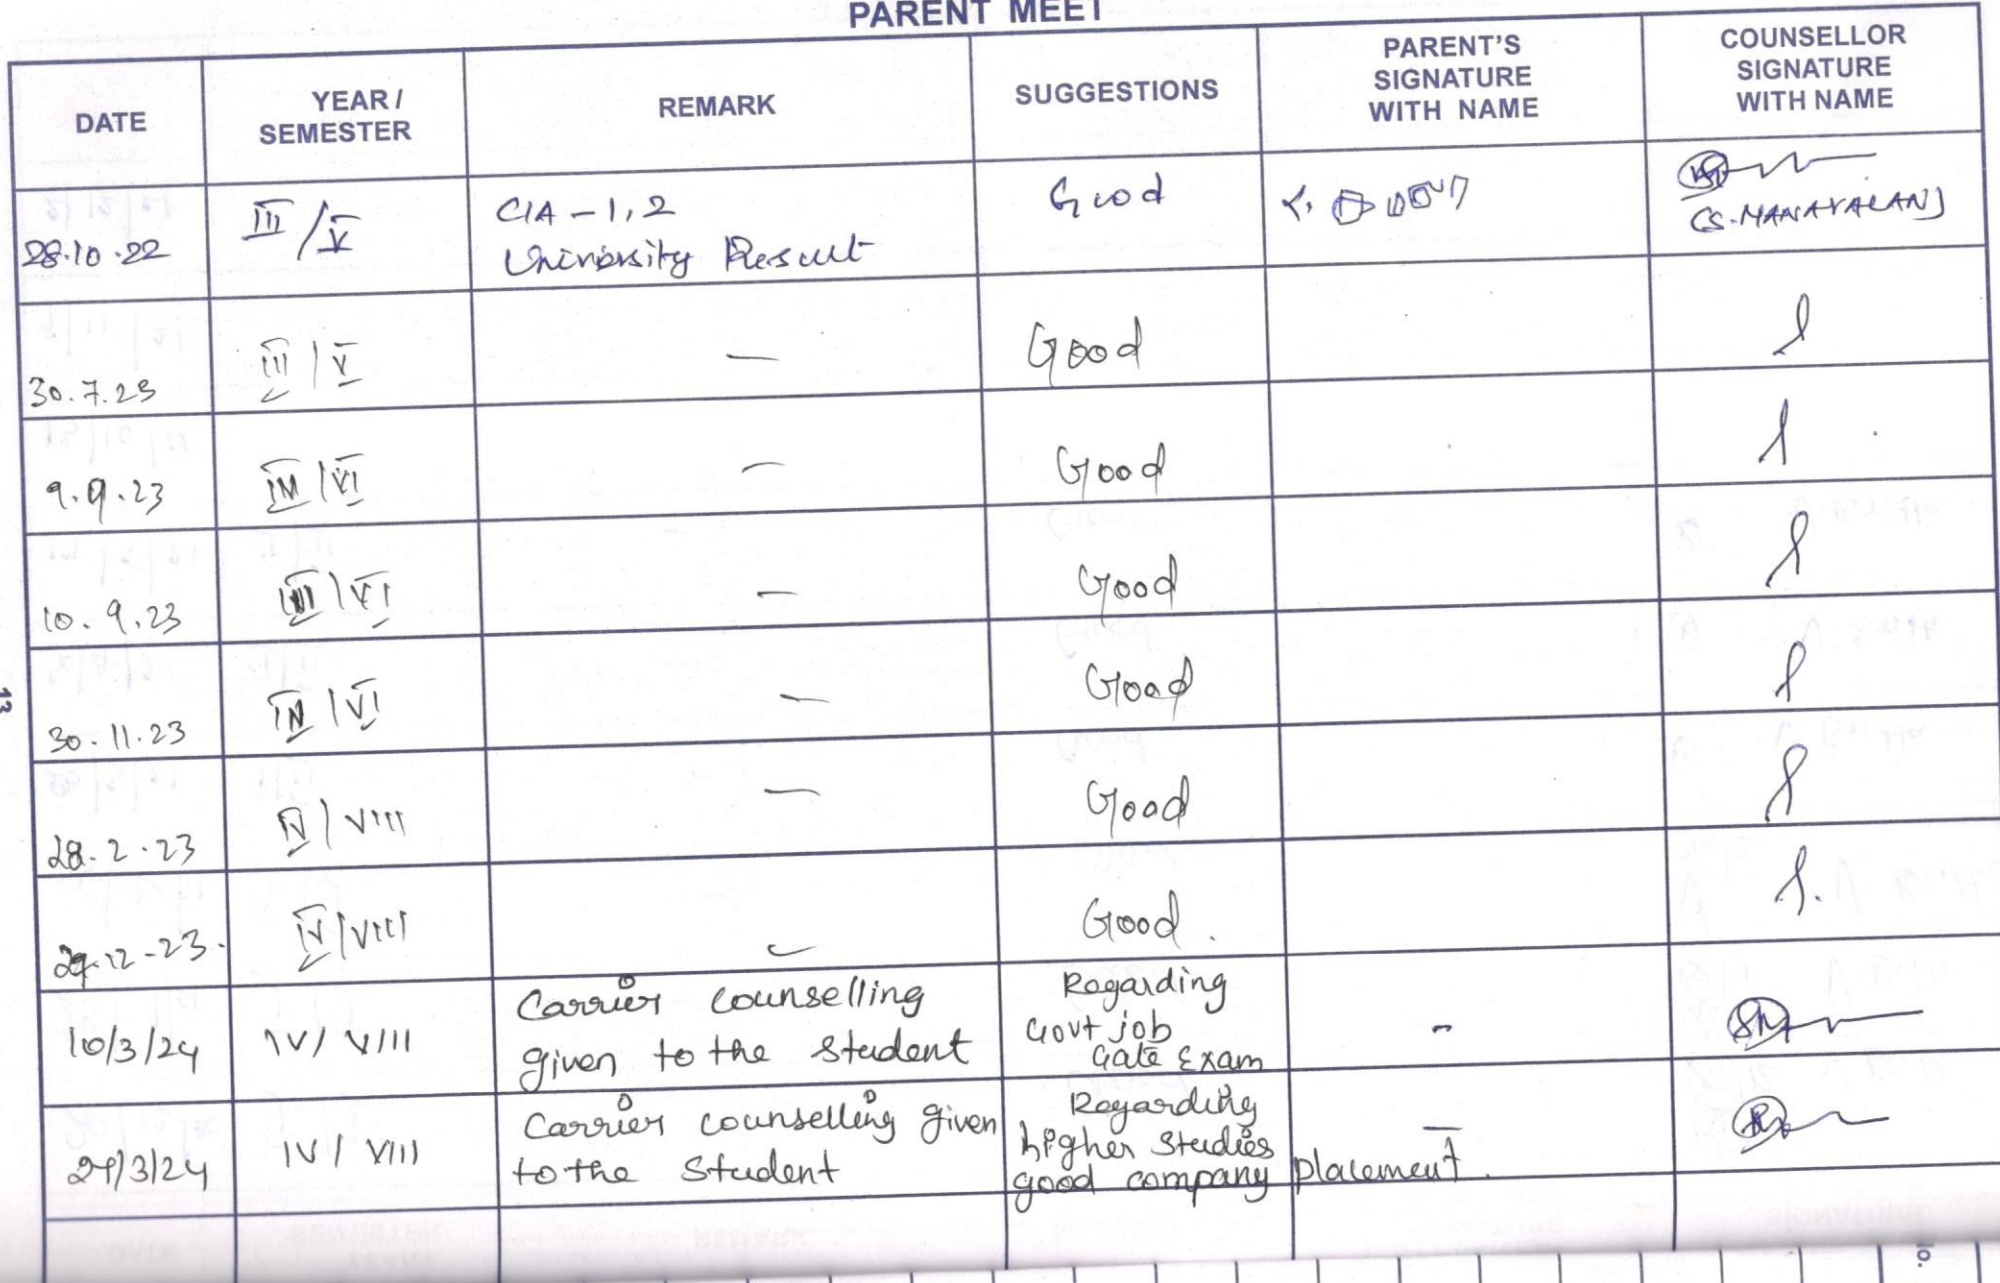 PARENT MEET
DATE
YEAR /
SEMESTER
REMARK
SUGGESTIONS
PARENT'S
SIGNATURE
WITH NAME
COUNSELLOR
SIGNATURE
WITH NAME
28.10.22
III / V
CIA - 1, 2
University Result
Good
(S. MANAVALAN)
30.7.23
III / V
—
Good
9.9.23
IV / VI
—
Good
10.9.23
III / VI
—
Good
30.11.23
IV / VI
—
Good
28.2.23
IV / VIII
—
Good
29.12-23.
IV / VIII
Good.
10/3/24
IV / VIII
Carrier counselling
given to the student
Regarding
Govt job
Gate Exam
-
IV / VIII
Carrier counselling given
to the Student
Regarding
higher Studies
good company placement.
—
13